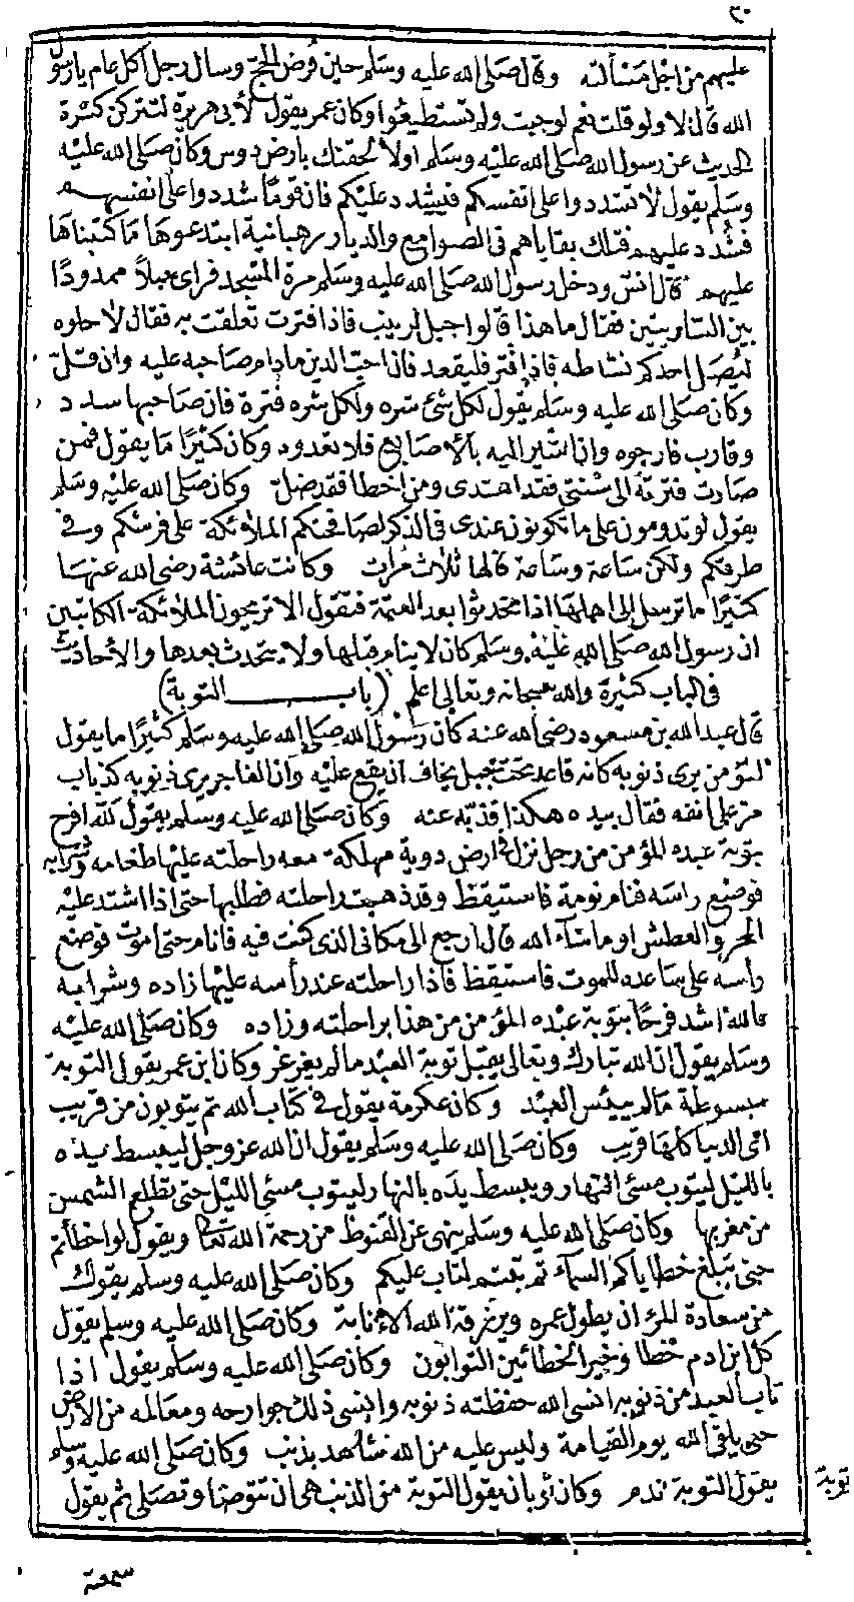 ٣٠
عليهم من اجل مسألته وقال صلى الله عليه وسلم حين فرض الحج وسال رجل اكل عام يا رسول
الله قال لا ولو قلت نعم لوجبت ولم تستطيعوا وكان عمر يقول لأبى هريرة لتتركن كثرة
الحديث عن رسول الله صلى الله عليه وسلم اولألحقنك بارض دوس وكان صلى الله عليه
وسلم يقول لا تشددوا على انفسكم فيشدد عليكم فان قوما شددوا على انفسهم
فشدد عليهم فتلك بقاياهم فى الصوامع والديار رهبانية ابتدعوها ما كتبناها
عليهم قال انس ودخل رسول الله صلى الله عليه وسلم مرة المسجد فراى حبلاً ممدودًا
بين الساريتين فقال ما هذا قالوا حبل لزينب فاذا فترت تعلقت به فقال لا حلوه
ليصل احدكم نشاطه فاذا فتر فليقعد فان احب الدين ما دام صاحبه عليه وان قل
وكان صلى الله عليه وسلم يقول لكل شئ شره ولكل شره فترة فان صاحبها سدد
وقارب فارجوه وان اشير اليه بالأصابع فلا تعدوه وكان كثيرًا ما يقول فمن
صارت فترته الى سنتى فقد اهتدى ومن اخطا فقد ضل وكان صلى الله عليه وسلم
يقول لو تدومون على ما تكونون عندى فى الذكر لصافحتكم الملائكة على فرشكم وفى
طرقكم ولكن ساعة وساعة قالها ثلاث مرات وكانت عائشة رضى الله عنها
كثيرًا ما ترسل إلى اهلها اذا تحدثوا بعد العتمة فتقول الا تريحون الملائكة الكاتبين
ان رسول الله صلى الله عليه وسلم كان لا ينام قبلها ولا يتحدث بعدها والأحاديث
فى الباب كثيرة والله سبحانه وتعالى اعلم (باب التوبة)
قال عبد الله بن مسعود رضى الله عنه كان رسول الله صلى الله عليه وسلم كثيرًا ما يقول
المؤمن يرى ذنوبه كانه قاعد تحت جبل يخاف ان يقع عليه وان الفاجر يرى ذنوبه كذباب
مر على انفه فقال بيده هكذا فذبه عنه وكان صلى الله عليه وسلم يقول لله افرح
بتوبة عبده المؤمن من رجل نزل فى ارض دوية مهلكة معه راحلته عليها طعامه وشرابه
فوضع راسه فنام نومة فاستيقظ وقد ذهبت راحلته فطلبها حتى اذا اشتد عليه
الحر والعطش او ما شآء الله قال ارجع الى مكانى الذى كنت فيه فانام حتى اموت فوضع
رأسه على ساعده للموت فاستيقظ فاذا راحلته عند رأسه عليها زاده وشرابه
فالله اشد فرحًا بتوبة عبده المؤمن من هذا براحلته وزاده وكان صلى الله عليه
وسلم يقول ان الله تبارك وتعالى يقبل توبة العبد ما لم يغرغر وكان ابن عمر يقول التوبة
مبسوطة ما لم ييئس العبد وكان عكرمة يقول فى كتاب الله ثم يتوبون من قريب
اى الدنيا كلها قريب وكان صلى الله عليه وسلم يقول ان الله عز وجل ليبسط يده
بالليل ليتوب مسئ النهار ويبسط يده بالنهار ليتوب مسئ الليل حتى تطلع الشمس
من مغربها وكان صلى الله عليه وسلم ينهى عن القنوط من رحمة الله تعالى ويقول لو اخطأتم
حتى تبلغ خطاياكم السمآء ثم تبتم لتاب عليكم وكان صلى الله عليه وسلم يقول
من سعادة المرء ان يطول عمره ويرزقه الله الإنابة وكان صلى الله عليه وسلم يقول
كل ابن ادم خطا وخير الخطائين التوابون وكان صلى الله عليه وسلم يقول اذا
تاب العبد من ذنوبه انسى الله حفظته ذنوبه وانسى ذلك جوارحه ومعالمه من الأرض
حتى يلقى الله يوم القيامة وليس عليه من الله شاهد بذنب وكان صلى الله عليه وسلم
يقول التوبة ندم وكان ابن ابان يقول التوبة من الذنب هى ان تتوضا وتصلى ثم يقول
توبة